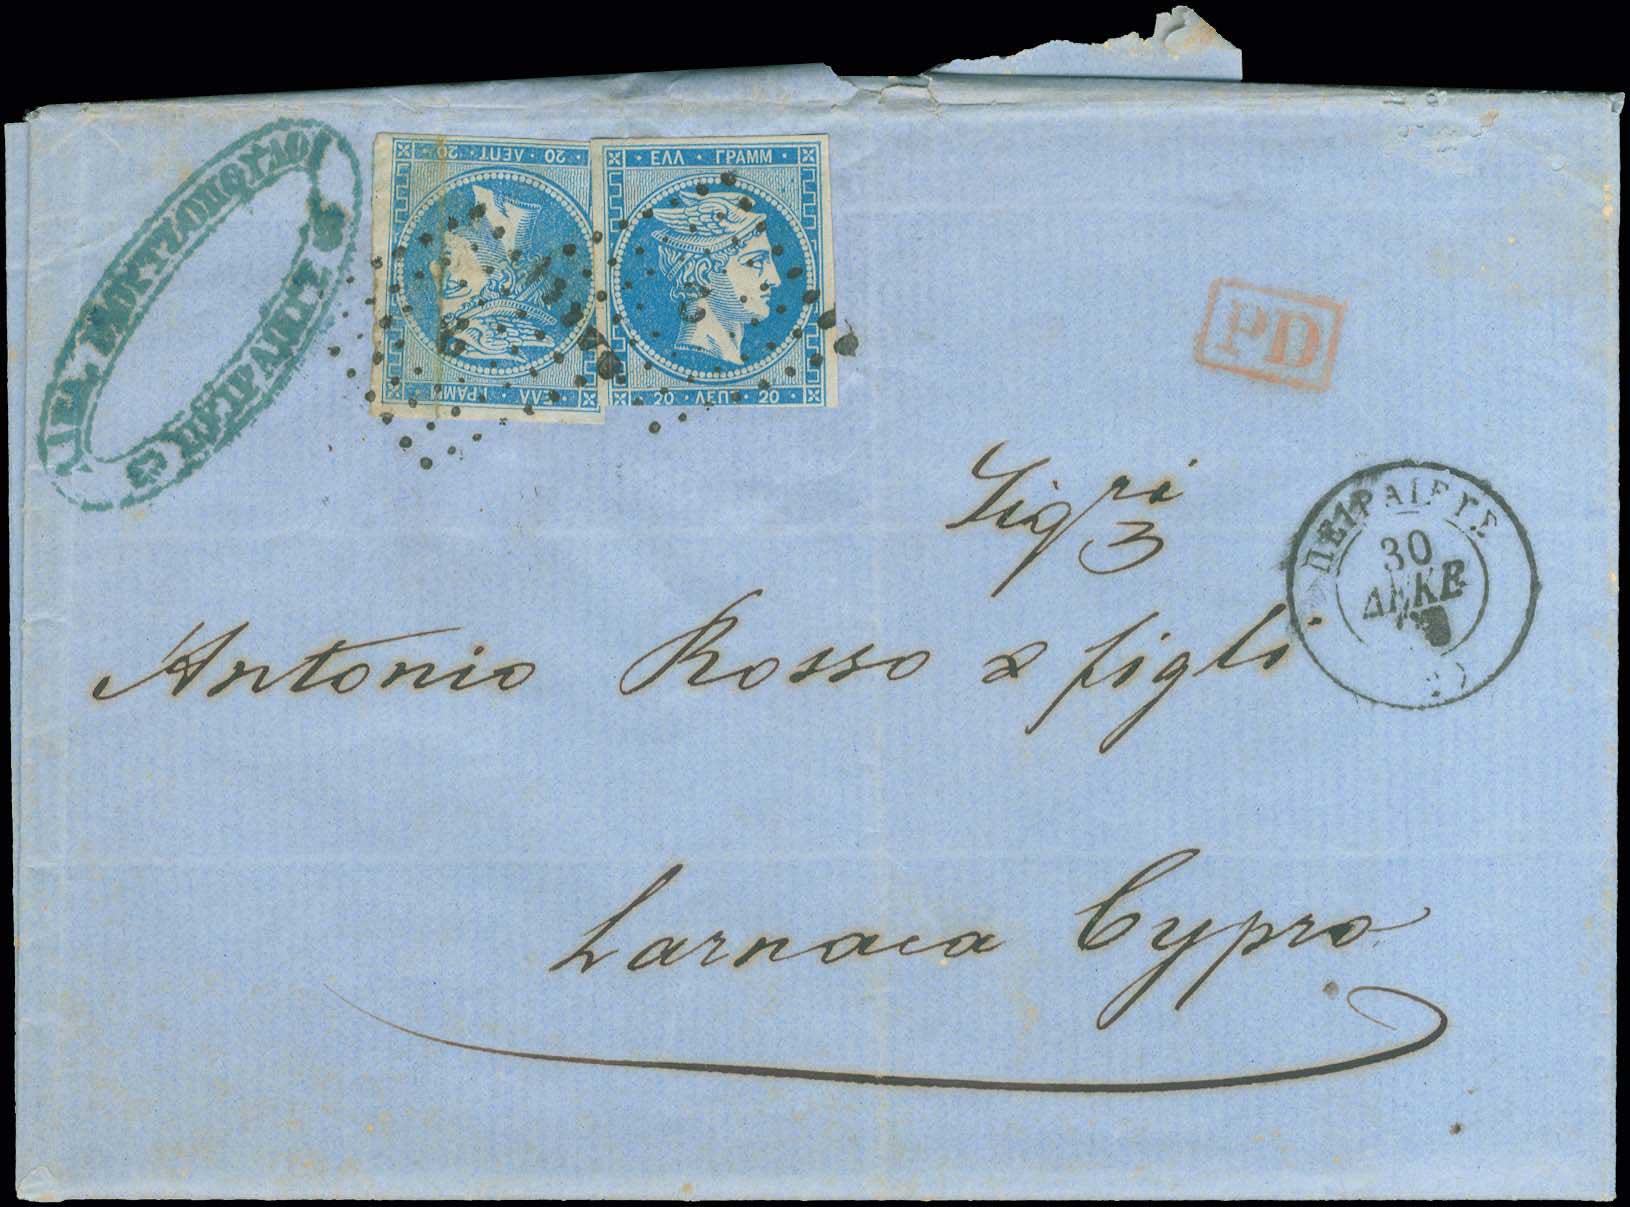 20 ΛΕΠΤ. 20
ΕΛΛ ΓΡΑΜΜ
ΕΛΛ ΓΡΑΜΜ
20 ΛΕΠΤ. 20
2
PD
Sigri
3
ΠΕΙΡΑΙΕΥΣ
30
ΔΕΚΕ
Antonio Rosso & figli
Larnaca Cypro
ΠΕΙΡΑΙΕΙ